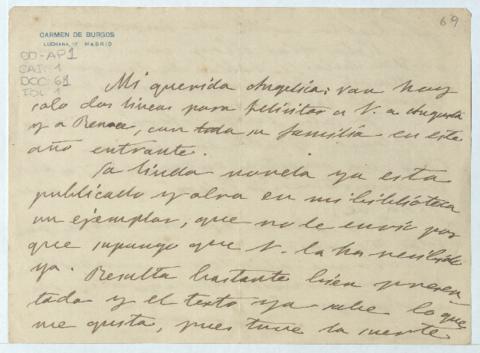 69
CARMEN DE BURGOS
LUCHANA, MADRID
OD-AP1
CAI: 1
DOC: 69
Mi querida Angelica: van hoy
solo dos lineas para felicitar a V. a
y a Renace, con toda su familia en este
año entrante.
La linda novela ya esta
publicado y obra en mi biblioteca
un ejemplar, que no le envio por
que supongo que V. la ha recibido
ya. Resulta bastante bien presen
tada y el texto ya sabe lo que
me gusta, pues tuve la suerte